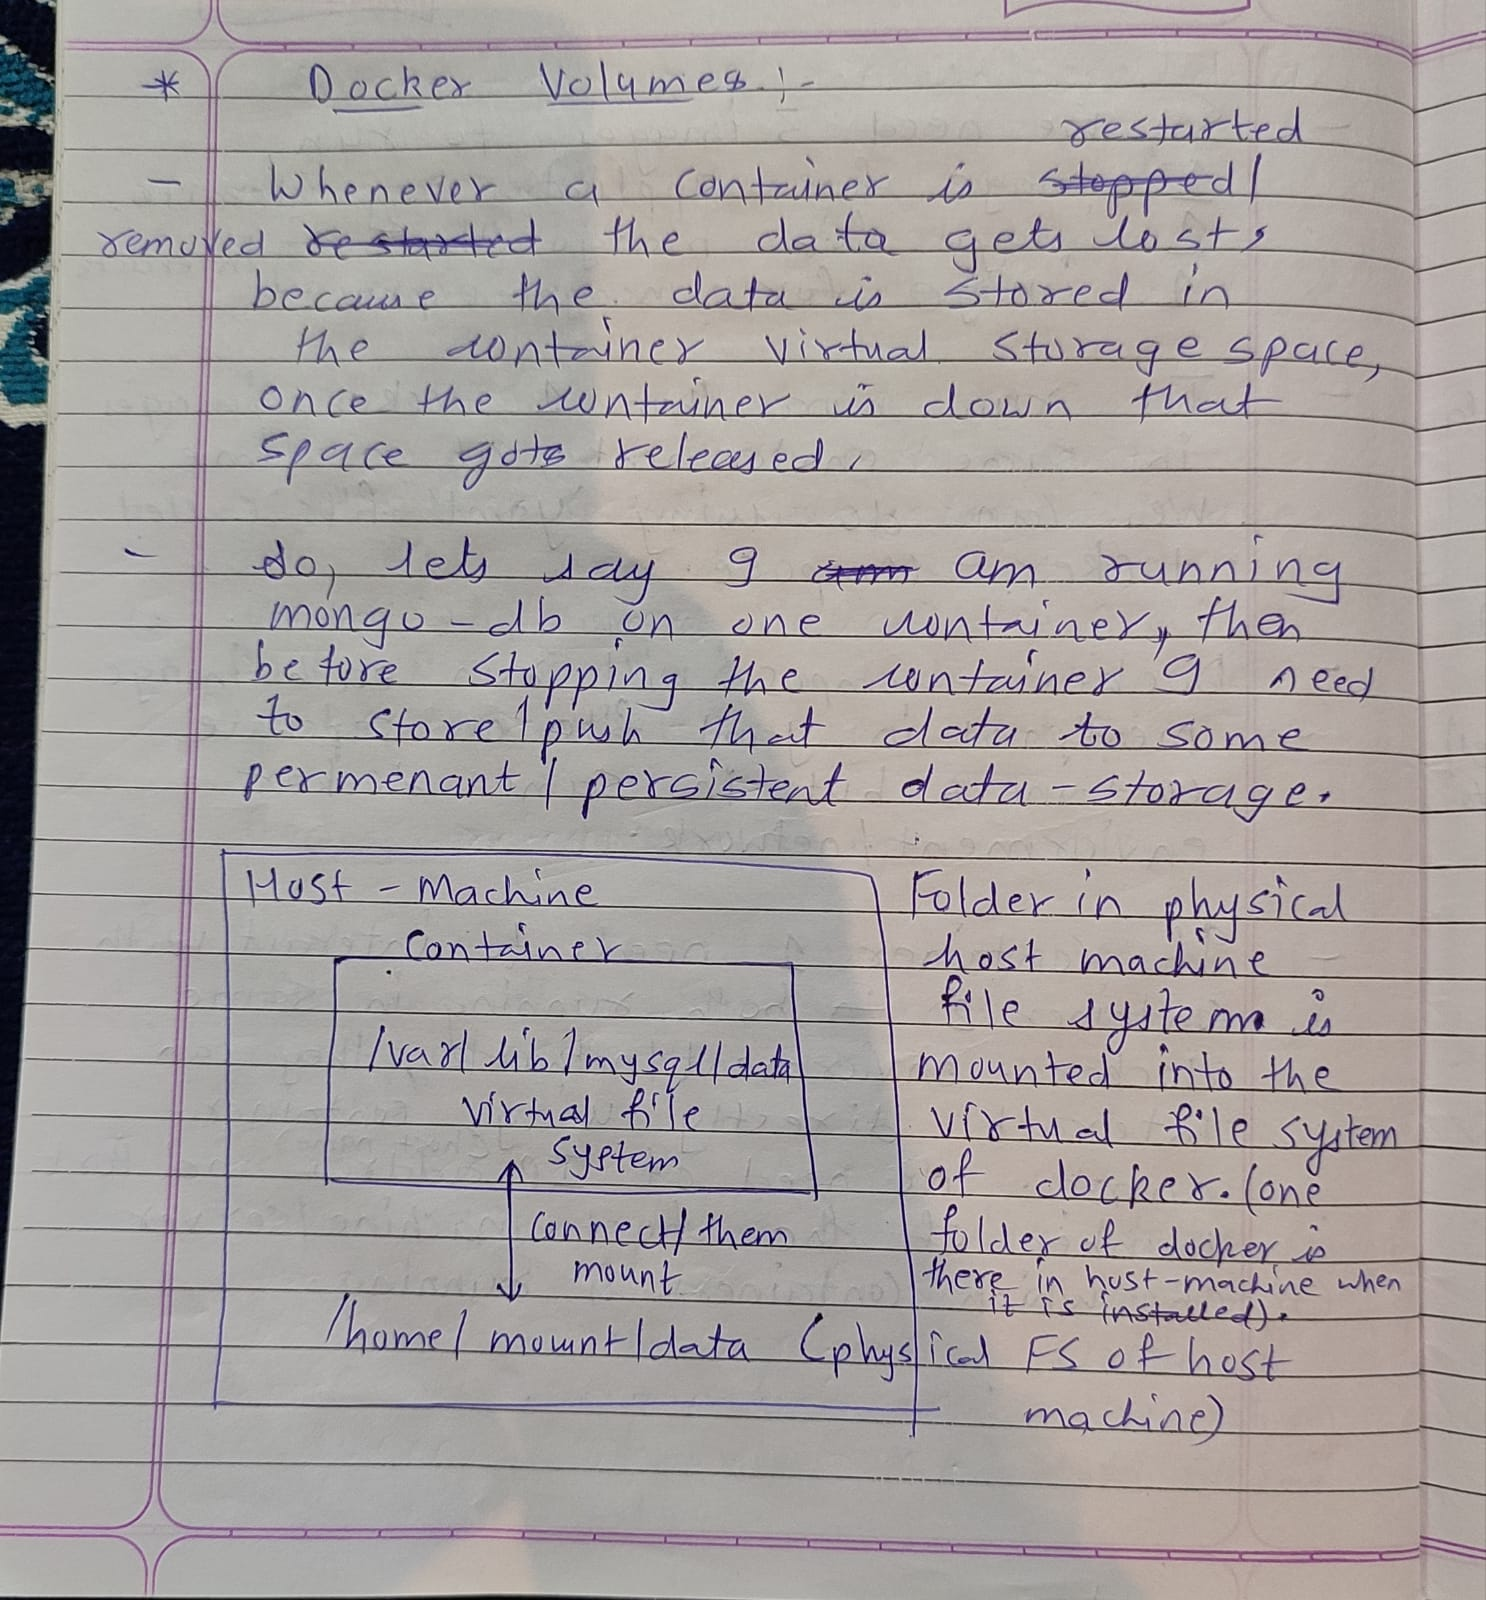 * Docker Volumes :-
restarted
- Whenever a container is stopped/
removed restarted the data gets lost,
because the data is stored in
the container virtual storage space,
once the container is down that
space gets released.
- So, lets say I am am running
mongo-db on one container, then
before stopping the container I need
to store/push that data to some
permenant/persistent data-storage.
Host - Machine
Container
/var/lib/mysql/data
virtual file
system
connect/them
mount
/home/mount/data (physical FS of host
machine)
Folder in physical
host machine
file system is
mounted into the
virtual file system
of docker. (one
folder of docker is
there in host-machine when
it is installed).